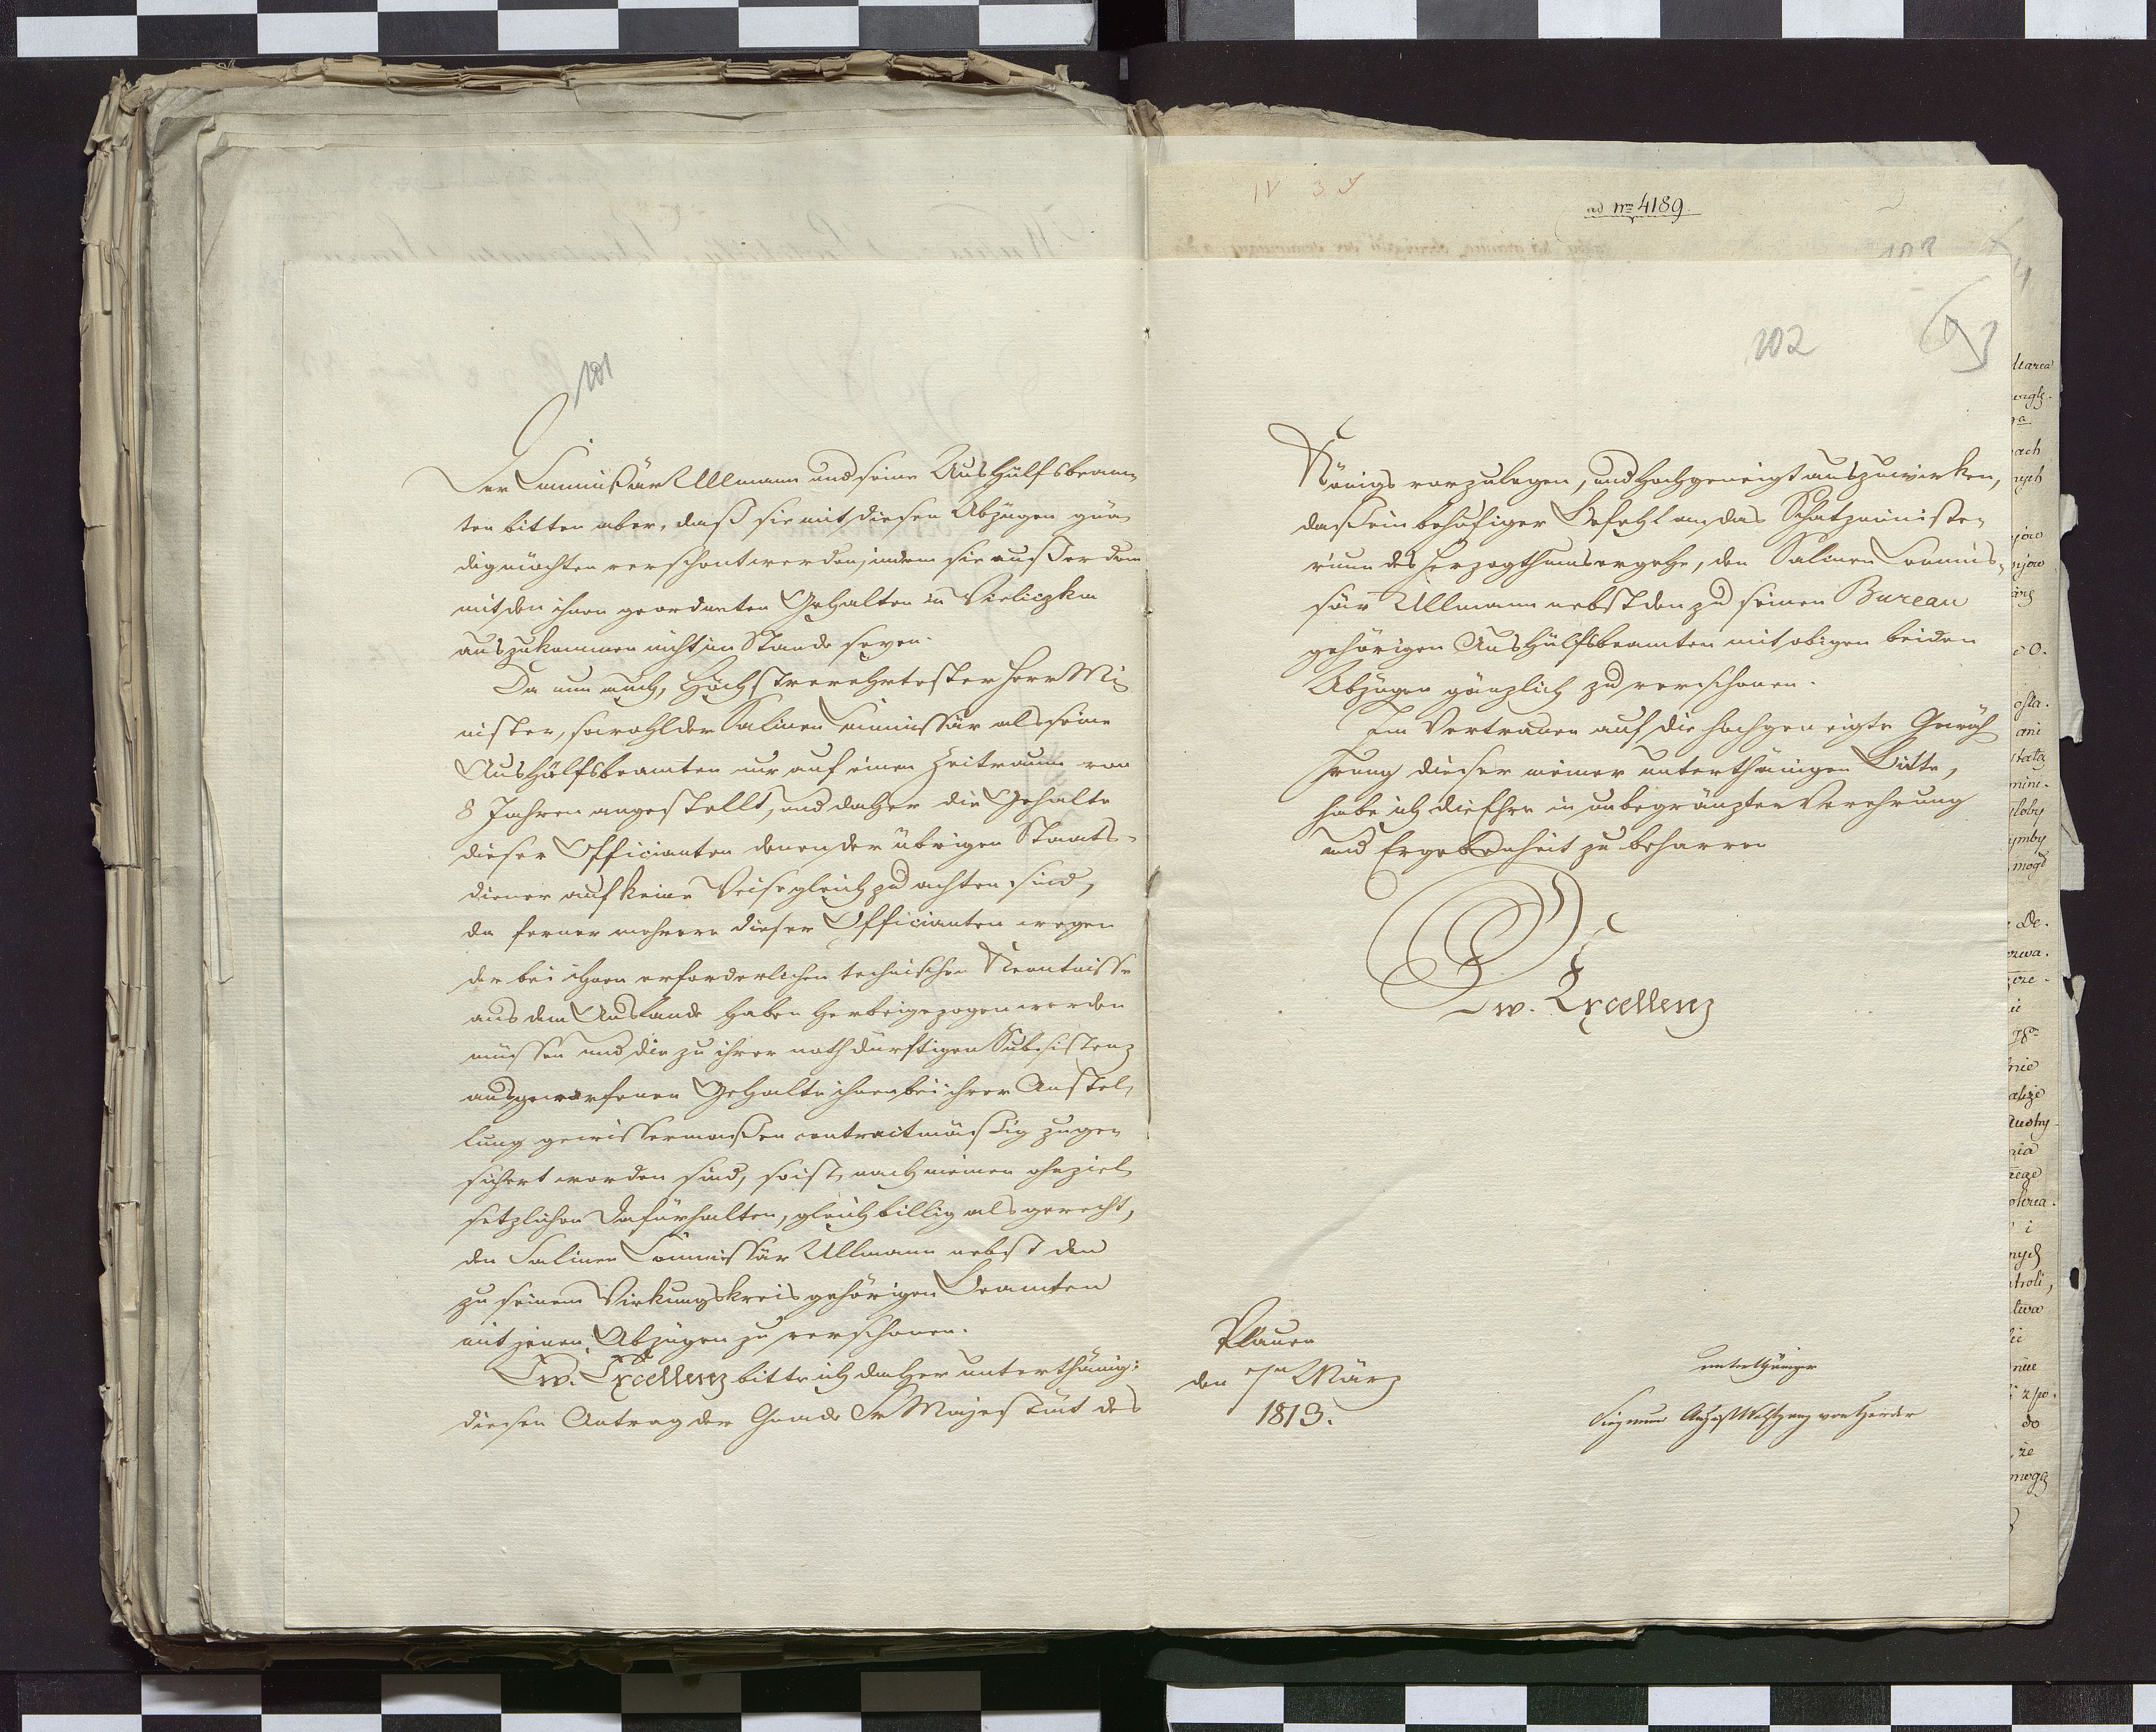 101
Der Commissär Ullmann und seine Aushülfsbeam¬
ten bitten aber, daß sie mit diesen Abzügen gnä¬
dig möchten verschont werden, indem sie außerdem
mit den ihnen geordneten Gehalten in Wieliczka
auszukommen nicht im Stande seyen.
Da nun auch, Höchstverehrtester Herr Mi¬
nister, sowohl der Salinen Commissär als seine
Aushülfsbeamten nur auf einen Zeitraum von
8 Jahren angestellt, und daher die Gehalte
dieser Officianten denen der übrigen Staats-
diener auf keine Weise gleich zu achten sind,
da ferner mehrere dieser Officianten wegen
der bei ihnen erforderlichen technischen Kenntnisse
aus dem Auslande haben herbeigezogen werden
müssen und die zu ihrer nothdürftigen Subsistenz
ausgeworfenen Gehalte ihnen bei ihrer Anstel¬
lung gewissermaßen contractmäßig zuge¬
sichert worden sind, so ist, nach meinem
setzlichen Dafürhalten, gleich billig als gerecht,
den Salinen Commissär Ullmann nebst den
zu seinem Wirkungskreis gehörigen Beamten
mit jenen Abzügen zu verschonen.
Ew. Excellenz bitte ich daher unterthänig:
diesen Antrag der Gnade Sr Majestät des
ad nro 4189
102
Königs vorzulegen, und hochgeneigt auszuwirken,
daß ein behufiger Befehl an das Schatzministe¬
rium des Herzogthums ergehe, den Salinen Commis¬
sär Ullmann nebst den zu seinem Bureau
gehörigen Aushülfsbeamten mit obigen beiden
Abzügen gänzlich zu verschonen.
Im Vertrauen auf die hochgeneigte Gewäh
rung dieser meiner unterthänigen Bitte,
habe ich die Ehre in unbegränzter Verehrung
und Ergebenheit zu beharren
Ew. Excellenz
Plauen
den März
1813.
unterthäniger
Siegmund August Wolfgang von Herder